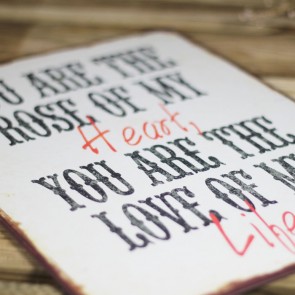 OU ARE THE
ROSE OF MY
Heart,
YOU ARE THE
LOVE OF M
Life